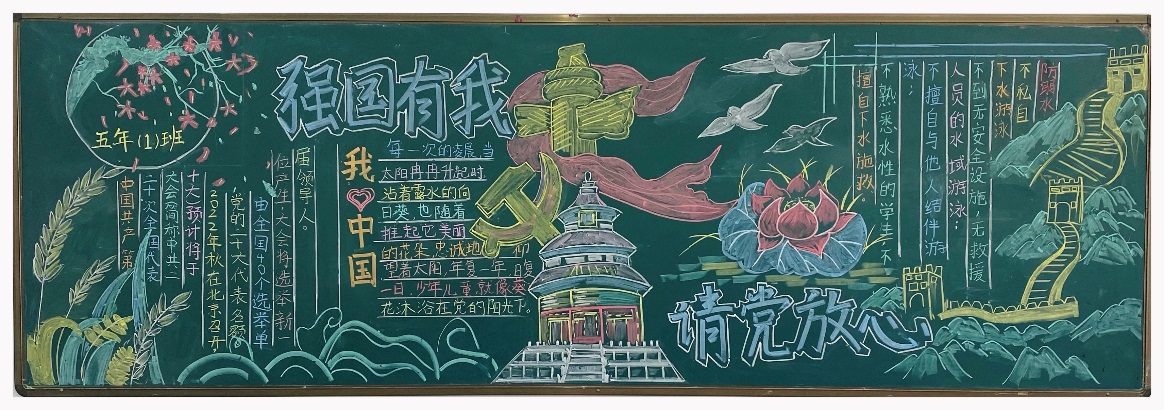 五年(1)班
强国有我
请党放心
我♡中国
每一次的凌晨,当
太阳冉冉升起时
沾着露水的向
日葵,也随着
挺起它美丽
的花朵,忠诚地仰
望着太阳,年复一年,日复
一日,少年儿童就像葵
花沐浴在党的阳光下。
中国共产党第
二十次全国代表
大会简称中共二
十大,预计将于
2022年秋在北京召开,
党的二十大代表名额
由全国40个选举单
位产生,大会将选举新一
届领导人。
防溺水
不私自
下水游泳
不到无安全设施,无救援
人员的水域游泳;
不擅自与他人结伴游
泳;
不熟悉水性的学生,不
擅自下水施救。